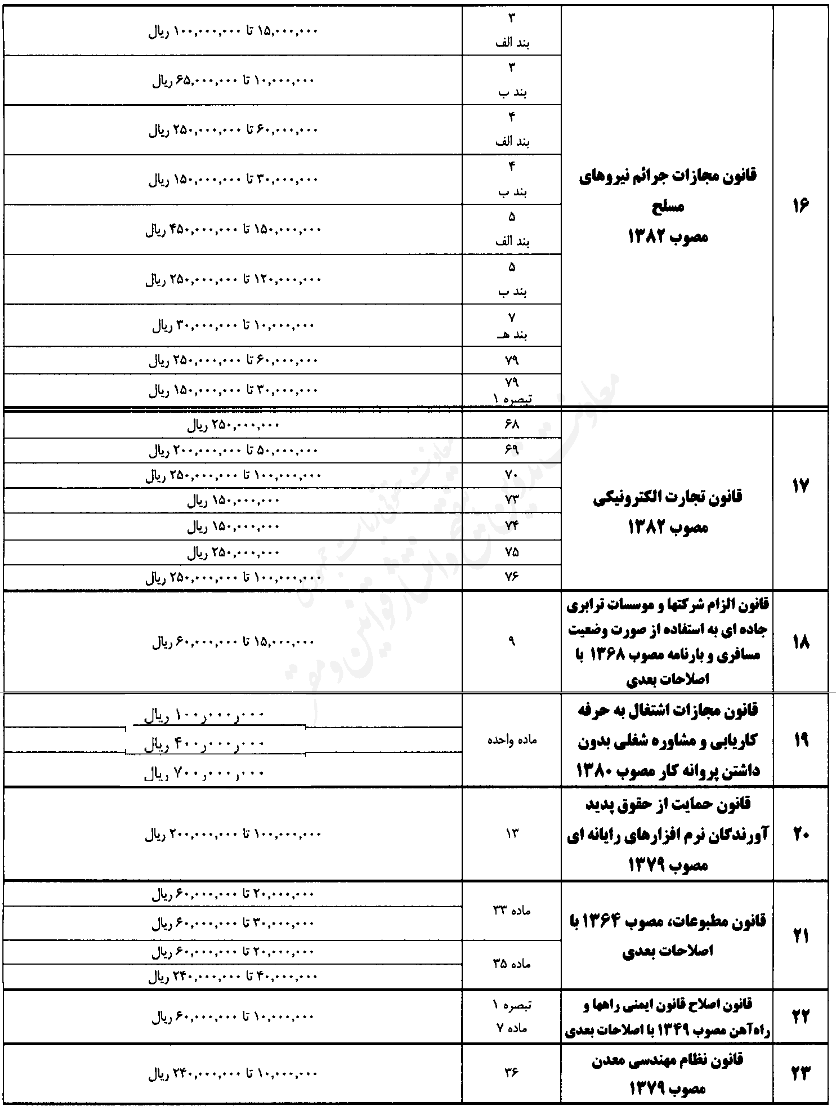 ۱۶
قانون مجازات جرائم نیروهای
مسلح
مصوب ۱۳۸۲
۳
بند الف
۱۵,۰۰۰,۰۰۰ تا ۱۰۰,۰۰۰,۰۰۰ ریال
۳
بند ب
۱۰,۰۰۰,۰۰۰ تا ۶۵,۰۰۰,۰۰۰ ریال
۴
بند الف
۶۰,۰۰۰,۰۰۰ تا ۲۵۰,۰۰۰,۰۰۰ ریال
۴
بند ب
۳۰,۰۰۰,۰۰۰ تا ۱۵۰,۰۰۰,۰۰۰ ریال
۵
بند الف
۱۵۰,۰۰۰,۰۰۰ تا ۴۵۰,۰۰۰,۰۰۰ ریال
۵
بند ب
۱۲۰,۰۰۰,۰۰۰ تا ۲۵۰,۰۰۰,۰۰۰ ریال
۷
بند هـ
۱۰,۰۰۰,۰۰۰ تا ۳۰,۰۰۰,۰۰۰ ریال
۷۹
۶۰,۰۰۰,۰۰۰ تا ۲۵۰,۰۰۰,۰۰۰ ریال
۷۹
تبصره ۱
۳۰,۰۰۰,۰۰۰ تا ۱۵۰,۰۰۰,۰۰۰ ریال
۱۷
قانون تجارت الکترونیکی
مصوب ۱۳۸۲
۶۸
۲۵۰,۰۰۰,۰۰۰ ریال
۶۹
۵۰,۰۰۰,۰۰۰ تا ۲۰۰,۰۰۰,۰۰۰ ریال
۷۰
۱۰۰,۰۰۰,۰۰۰ تا ۲۵۰,۰۰۰,۰۰۰ ریال
۷۳
۱۵۰,۰۰۰,۰۰۰ ریال
۷۴
۱۵۰,۰۰۰,۰۰۰ ریال
۷۵
۲۵۰,۰۰۰,۰۰۰ ریال
۷۶
۱۰۰,۰۰۰,۰۰۰ تا ۲۵۰,۰۰۰,۰۰۰ ریال
۱۸
قانون الزام شرکتها و موسسات ترابری
جاده ای به استفاده از صورت وضعیت
مسافری و بارنامه مصوب ۱۳۶۸ با
اصلاحات بعدی
۹
۱۵,۰۰۰,۰۰۰ تا ۶۰,۰۰۰,۰۰۰ ریال
۱۹
قانون مجازات اشتغال به حرفه
کاریابی و مشاوره شغلی بدون
داشتن پروانه کار مصوب ۱۳۸۰
ماده واحده
۱۰۰٫۰۰۰٫۰۰۰ ریال
۴۰۰٫۰۰۰٫۰۰۰ ریال
۷۰۰٫۰۰۰٫۰۰۰ ریال
۲۰
قانون حمایت از حقوق پدید
آورندگان نرم افزارهای رایانه ای
مصوب ۱۳۷۹
۱۳
۱۰۰,۰۰۰,۰۰۰ تا ۲۰۰,۰۰۰,۰۰۰ ریال
۲۱
قانون مطبوعات، مصوب ۱۳۶۴ با
اصلاحات بعدی
ماده ۳۳
۲۰,۰۰۰,۰۰۰ تا ۶۰,۰۰۰,۰۰۰ ریال
۳۰,۰۰۰,۰۰۰ تا ۶۰,۰۰۰,۰۰۰ ریال
ماده ۳۵
۲۰,۰۰۰,۰۰۰ تا ۶۰,۰۰۰,۰۰۰ ریال
۴۰,۰۰۰,۰۰۰ تا ۲۴۰,۰۰۰,۰۰۰ ریال
۲۲
قانون اصلاح قانون ایمنی راهها و
راه‌آهن مصوب ۱۳۴۹ با اصلاحات بعدی
تبصره ۱
ماده ۷
۱۰,۰۰۰,۰۰۰ تا ۶۰,۰۰۰,۰۰۰ ریال
۲۳
قانون نظام مهندسی معدن
مصوب ۱۳۷۹
۳۶
۱۰,۰۰۰,۰۰۰ تا ۲۴۰,۰۰۰,۰۰۰ ریال